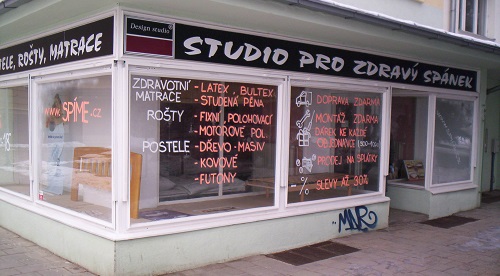 TELE, ROŠTY, MATRACE
Design studio®
STUDIO PRO ZDRAVÝ SPÁNEK
www.SPÍME.cz
ZDRAVOTNÍ MATRACE - LATEX, BULTEX
- STUDENÁ PĚNA
ROŠTY - FIXNÍ, POLOHOVACÍ
- MOTOROVÉ POL.
POSTELE - DŘEVO - MASIV
- KOVOVÉ
- FUTONY
DOPRAVA ZDARMA
MONTÁŽ ZDARMA
DÁREK KE KAŽDÉ
OBJEDNÁVCE
PRODEJ NA SPLÁTKY
% - SLEVY AŽ 30%